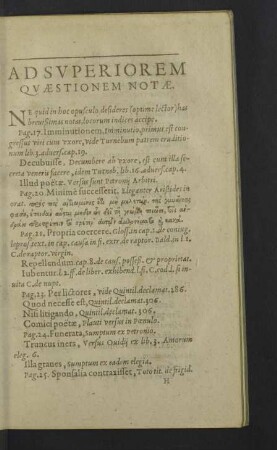 AD SVPERIOREM
QVÆSTIONEM NOTÆ.
NE quid in hoc opusculo desideres (optime lector) has
breuissimas notas, locorum indices accipe.
Pag. 17. Imminutionem, Diminutio, primus est con-
gressus viri cum vxore, vide Turnebum patrem eruditio-
num lib. 3. aduers. cap. 19.
Decubuisse. Decumbere ab vxore, est cum illa se-
creta veneris facere, idem Turneb. lib. 16. aduers. cap. 4.
Illud poëtæ. Versus sunt Petronij Arbitri.
Pag. 20. Minimè successerit, Eleganter Aristides in
orat.
Pag. 21, Propria coercere. Gloss. in cap. 1. de coniug.
lepros. text. in cap. causa in fi. extr. de raptor. Bald. in l. 2.
C. de raptor. virgin.
Repellundum cap. 8. de caus. possess. & propriet.
Iubentur l. 2. ff. de liber. exhibend. l. si, C. eod. l. si in-
uita C. de nupt.
Pag. 23. Per lictores, vide Quintil. declamat. 386.
Quod necesse est, Quintil. declamat. 306.
Nisi litigando, Quintil. declamat. 306.
Comici poëtæ, Plauti versus in Pœnulo.
Pag. 24. Funerata, sumptum ex Petronio.
Truncus iners, Versus Ouidij ex lib. 3. Amorum
eleg. 6.
Illa graues, sumptum ex eadem elegia.
Pag. 25. Sponsalia contraxisset, Toto tit. de frigid.
H